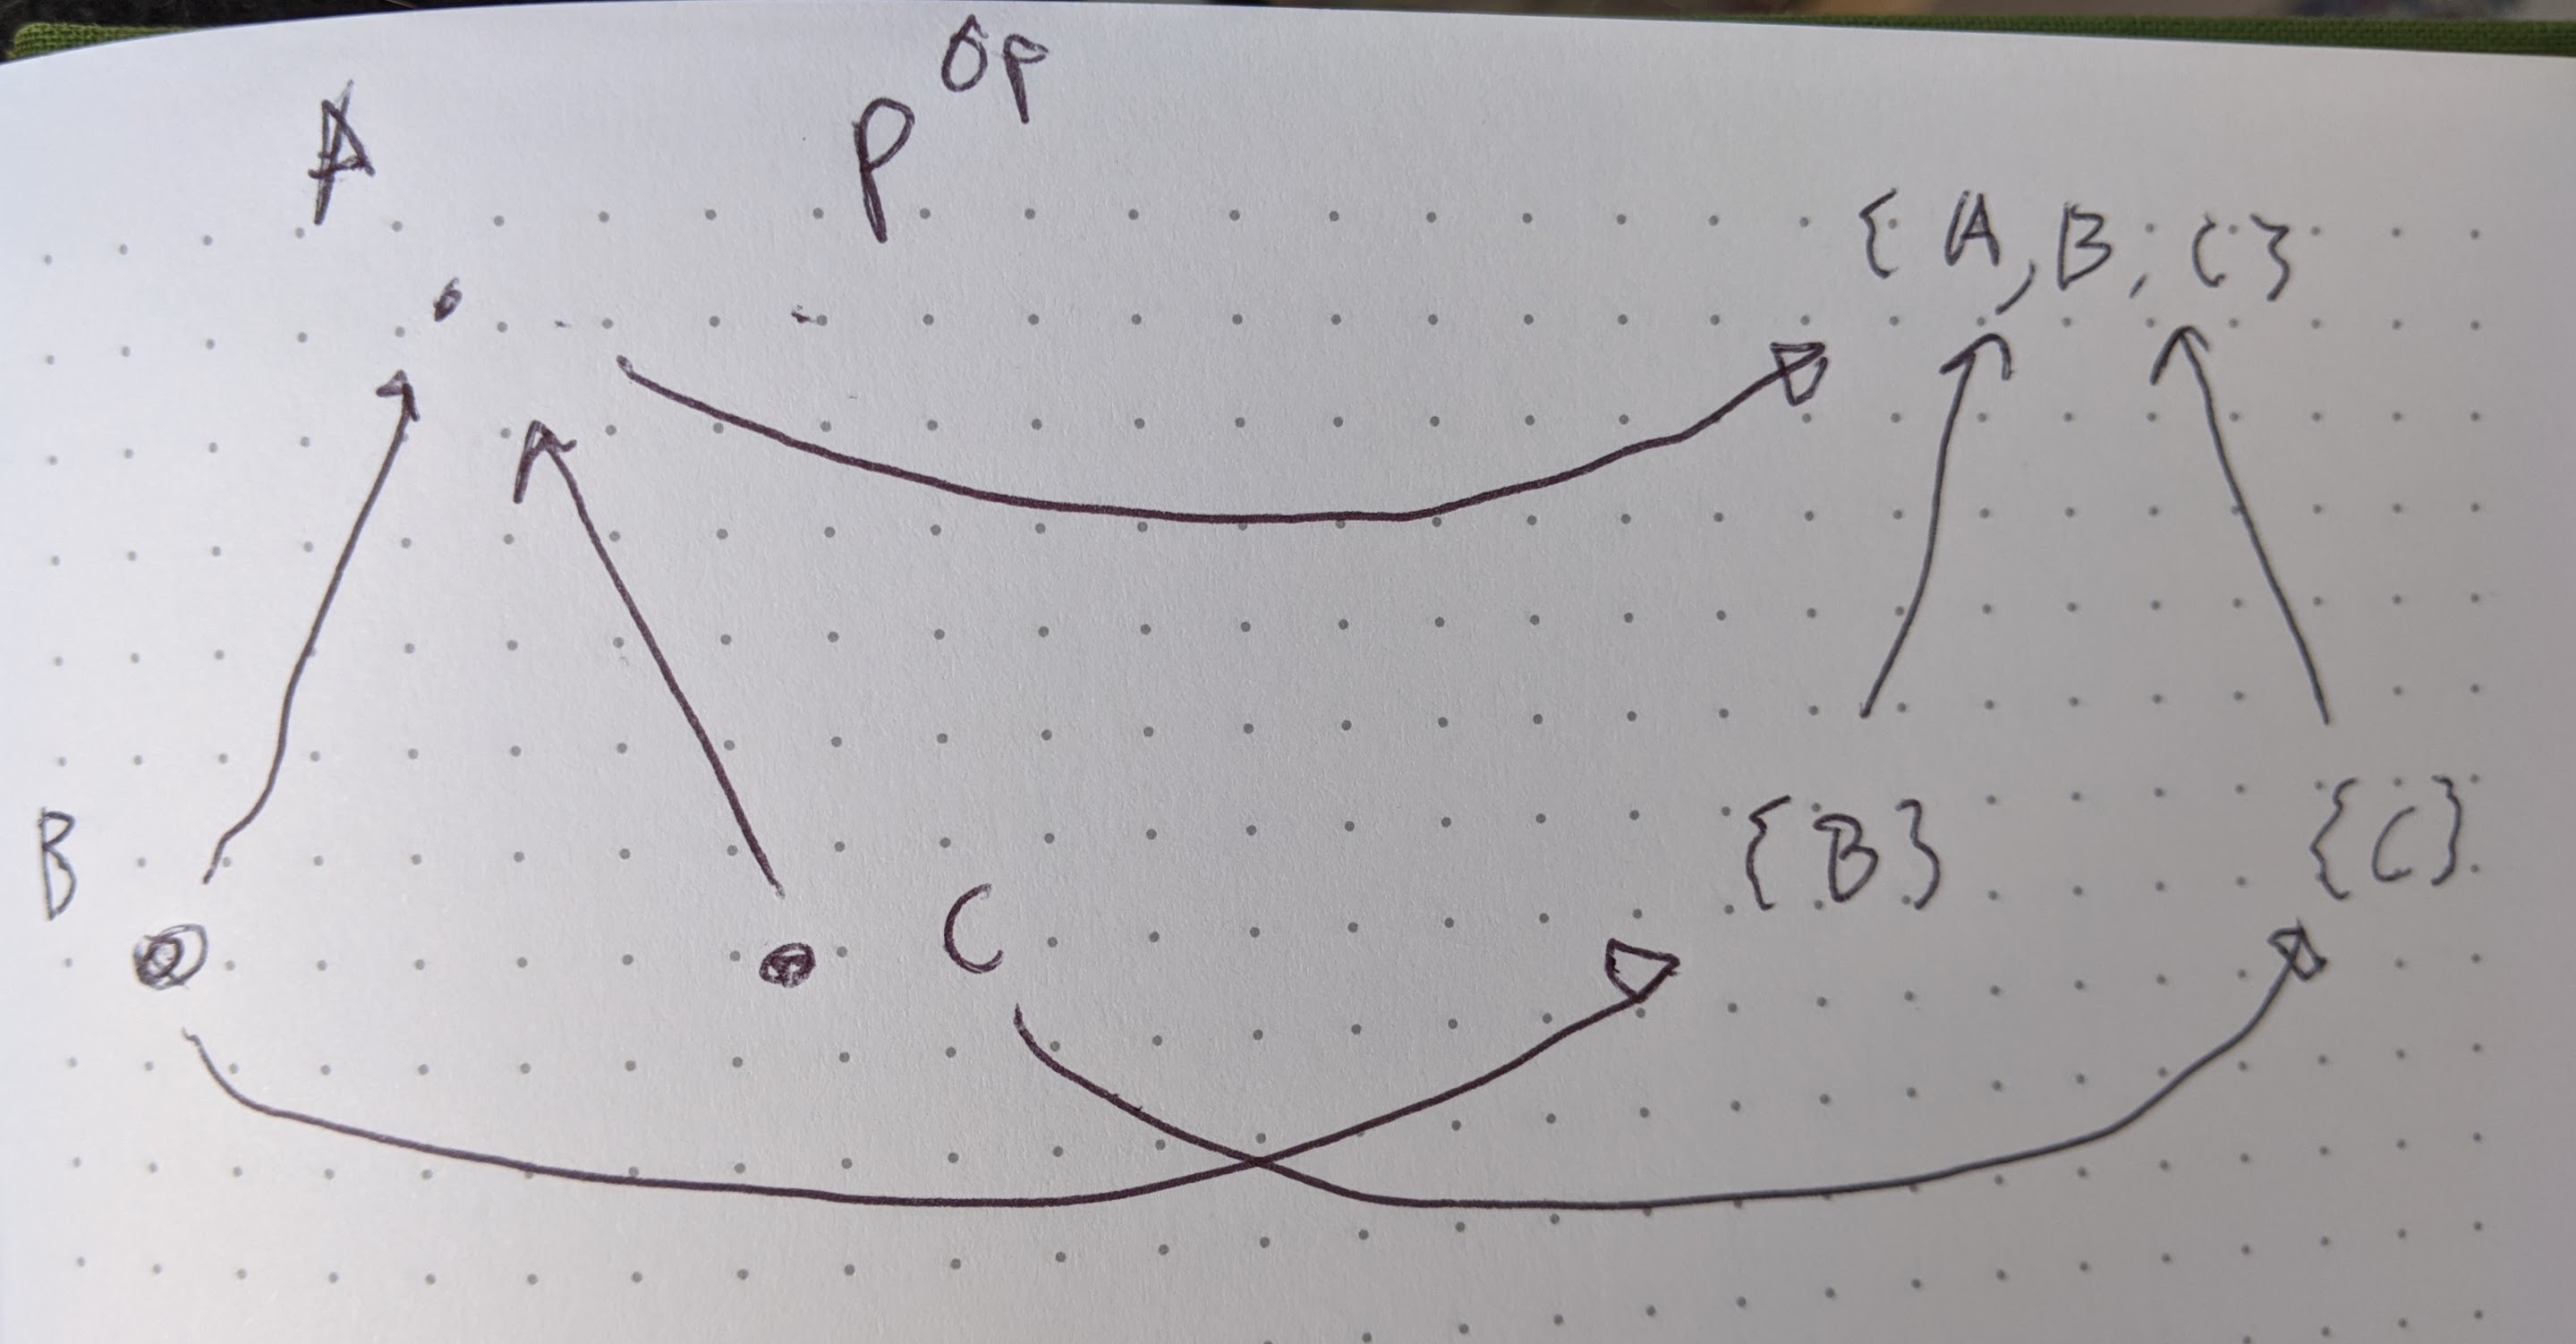 A P^op
{A, B, C}
B {B} {C}
C